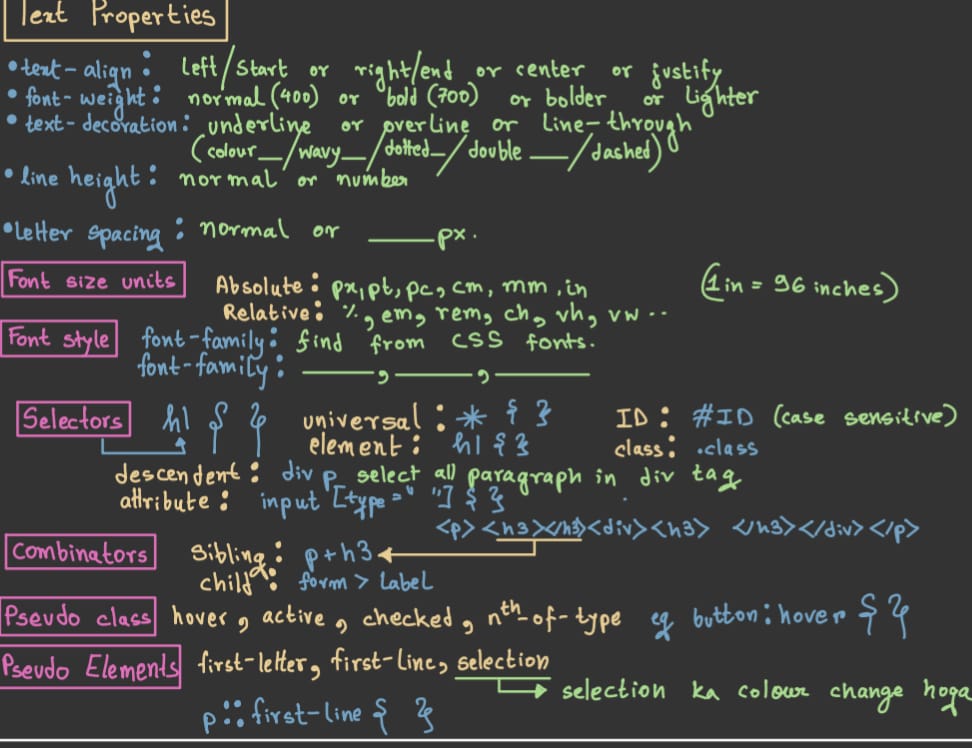 Text Properties
• text-align: left/start or right/end or center or justify
• font-weight: normal (400) or bold (700) or bolder or lighter
• text-decoration: underline or overline or line-through
(colour__/wavy__/dotted_/double ___/dashed)
• line height: normal or number
• letter spacing: normal or ____px.
Font size units Absolute: px, pt, pc, cm, mm, in (1in = 96 inches)
Relative: %, em, rem, ch, vh, vw ..
Font style font-family: find from CSS fonts.
font-family: ____, ____, ____
Selectors h1 { } universal: * { } ID: #ID (case sensitive)
element: h1 { } class: .class
descendent: div p select all paragraph in div tag
attribute: input [type=" "] { }
<p> <h3></h3><div><h3> </h3></div></p>
Combinators sibling: p+h3
child: form > label
Pseudo class hover, active, checked, nth-of-type eg button:hover { }
Pseudo Elements first-letter, first-line, selection
selection ka colour change hoga
p::first-line { }